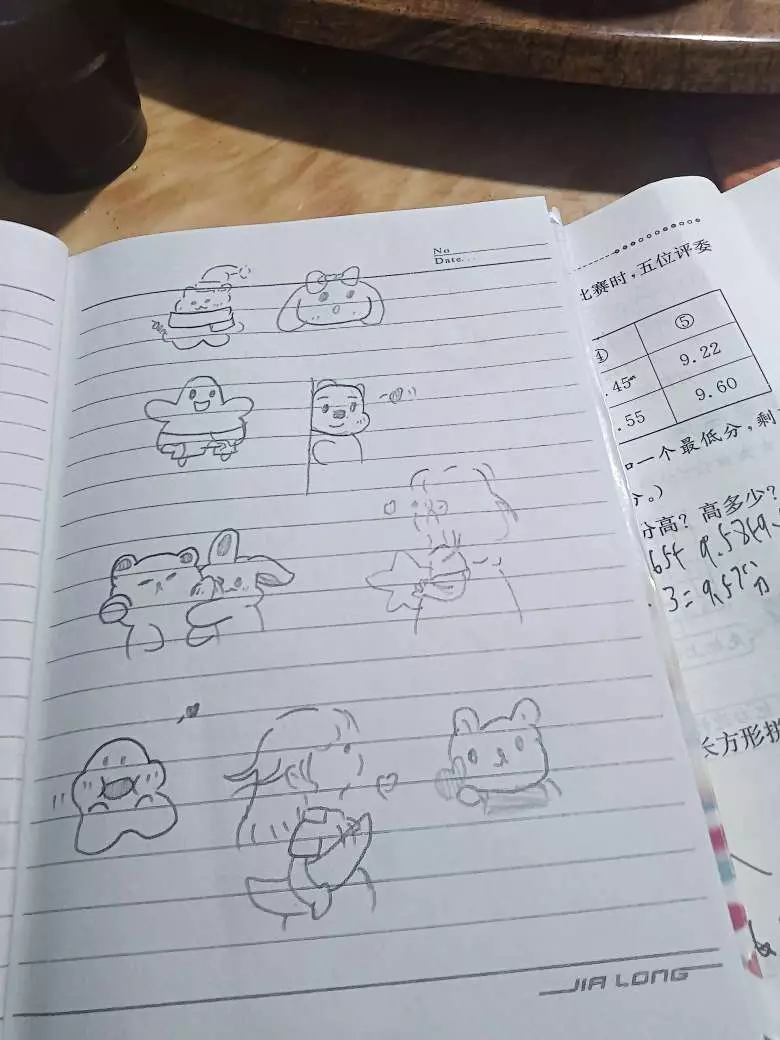 No
Date...
比赛时,五位评委
⑤
.45
9.22
.55
9.60
一个最低分,剩
分。)
分高?高多少?
654
3=9.57分
长方形拼
JIA LONG